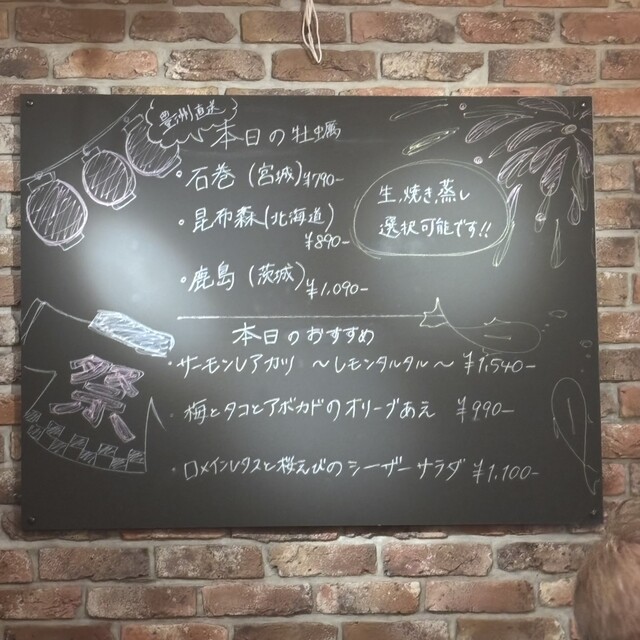 豊洲直送
本日の牡蠣
・石巻(宮城)¥790-
・昆布森(北海道)
¥890-
・鹿島(茨城)¥1,090-
生,焼き,蒸し
選択可能です!!
本日のおすすめ
・サーモンレアカツ 〜レモンタルタル〜 ¥1,540-
・梅とタコとアボカドのオリーブあえ ¥990-
・ロメインレタスと桜えびのシーザーサラダ ¥1,100-
祭